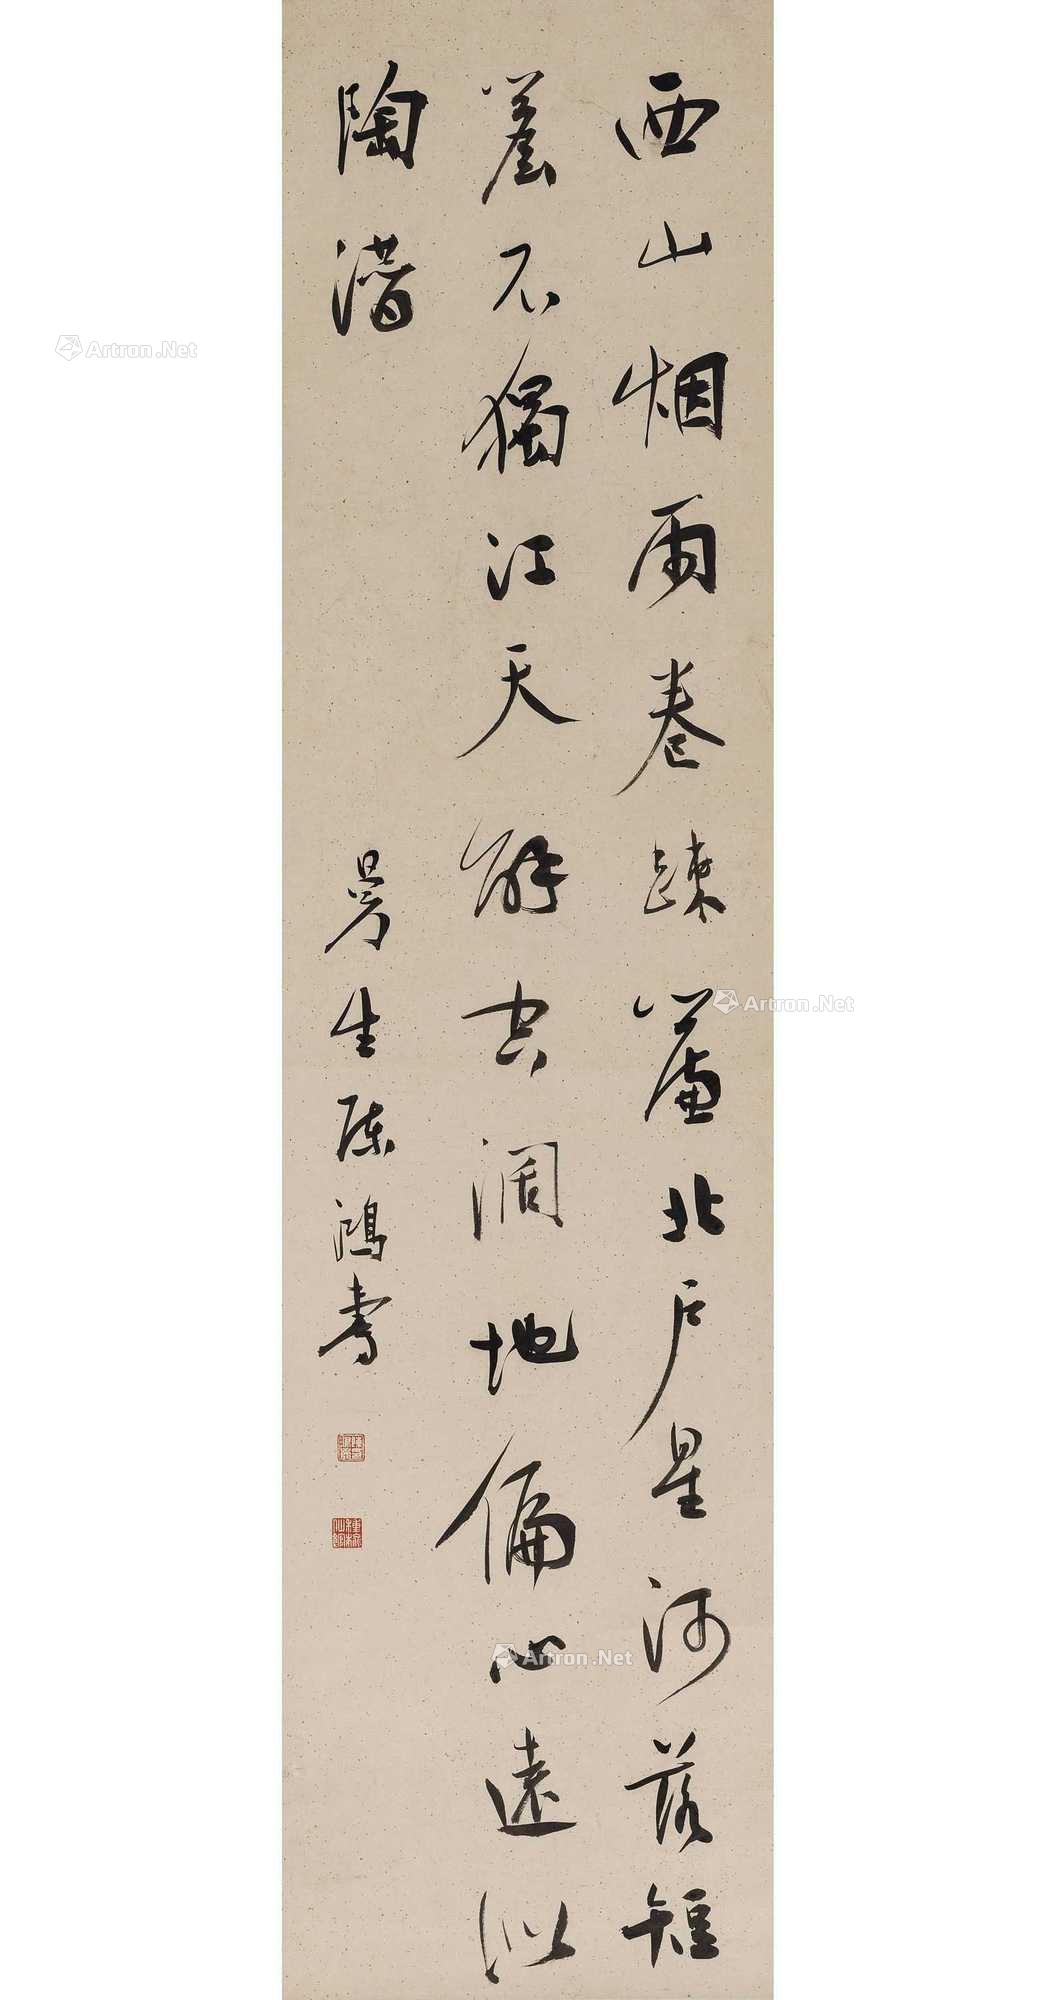 西山烟雨卷疎簾北戶星河落短
簷不獨江天解空闊地偏心遠似
陶潛
曼生陳鴻壽
Artron.Net
Artron.Net
Artron.Net